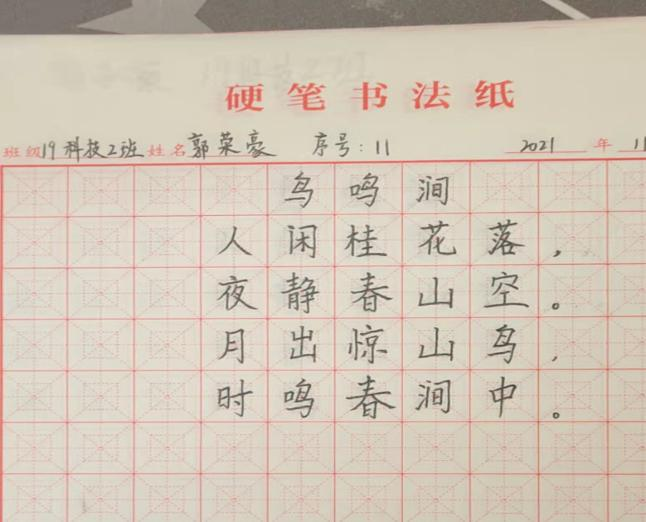 硬笔书法纸
班级19科技2班 姓名郭荣豪 序号:11 2021年11
鸟鸣涧
人闲桂花落，
夜静春山空。
月出惊山鸟，
时鸣春涧中。